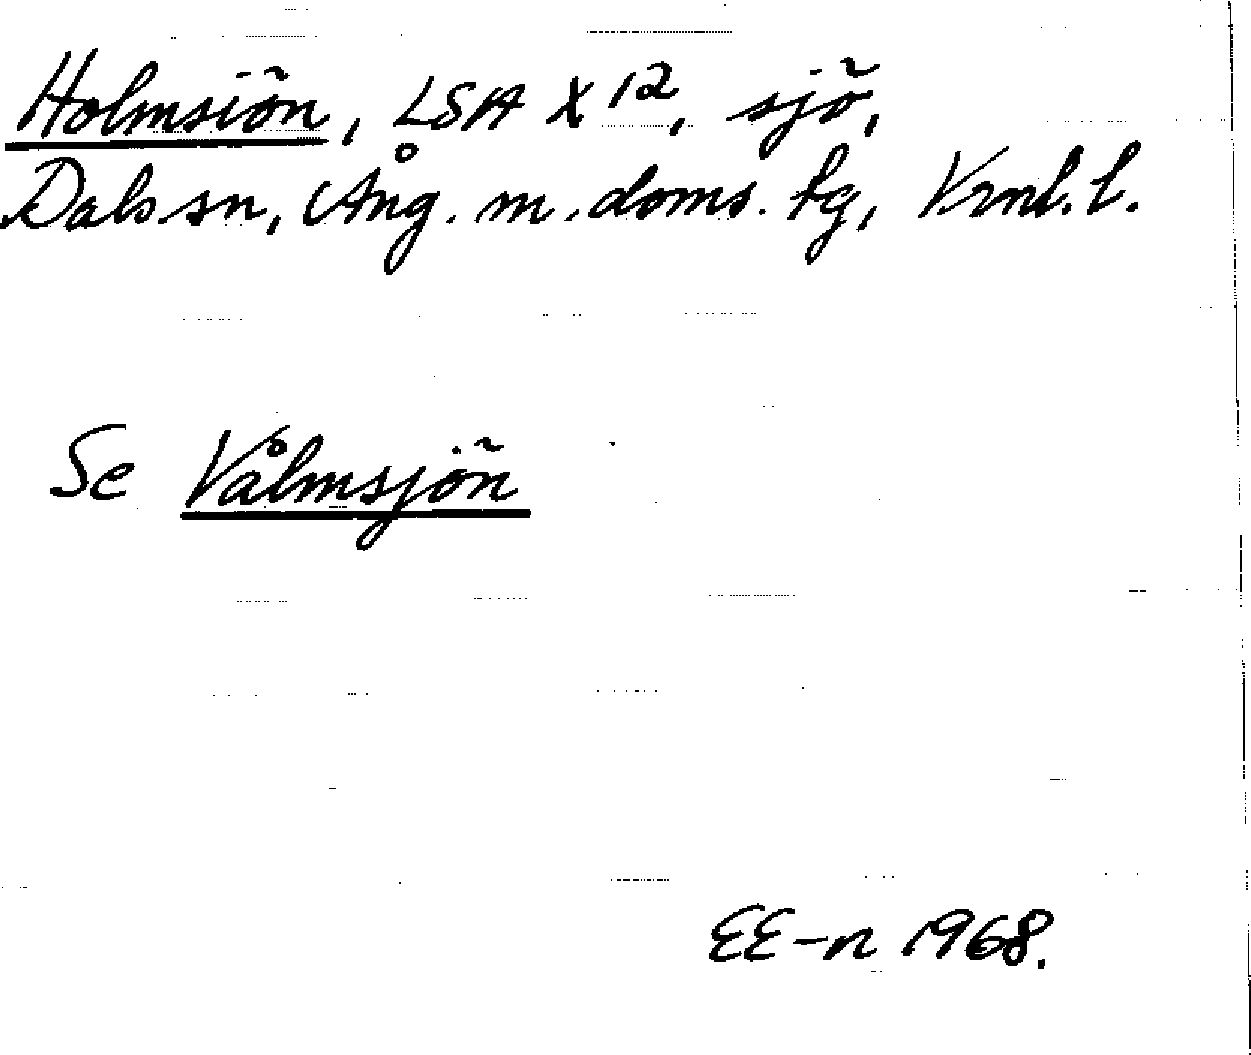 Holmsiön, LSA X 12, sjö,
Dals sn, Ång. m. doms. tg, Vrnl. l.
Se Vålmsjön
EE-n 1968.